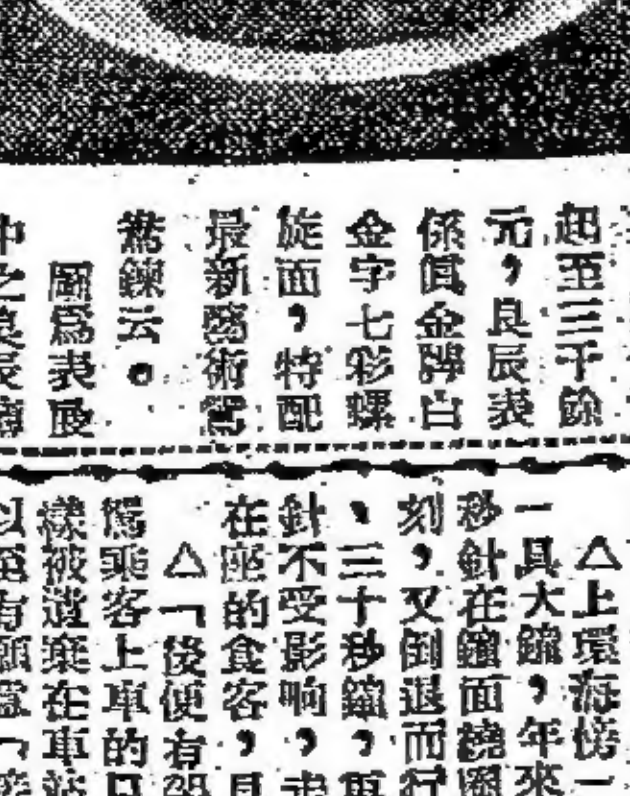 起至三千餘
元，良辰表
係眞金牌白
金字七彩螺
旋面，特配
最新藝術鴛
鴦鍊云。
圖爲表展
中之良辰
△上環海傍一
一具大鐘，年來
秒針在鐘面繞圈
刻，又倒退而行
、三十秒鐘，再
針不受影响，走
在座的食客，見
△「後便有
乘客上車的
樣被遺棄在車站
以至有